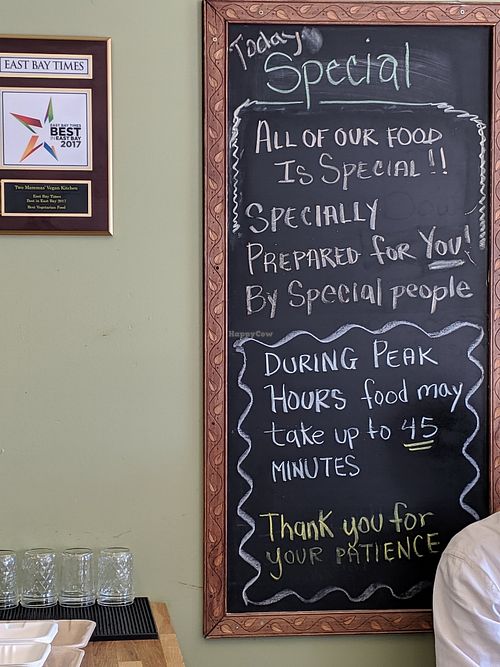 EAST BAY TIMES
EAST BAY TIMES
BEST
IN EAST BAY
2017
Two Mammas' Vegan Kitchen
East Bay Times
Best in East Bay 2017
Best Vegetarian Food
Today
Special
ALL OF OUR FOOD
IS SPECIAL!!
SPECIALLY
PREPARED for YOU!
By Special people
HappyCow
DURING PEAK
HOURS food may
take up to 45
MINUTES
Thank you for
YOUR PATIENCE